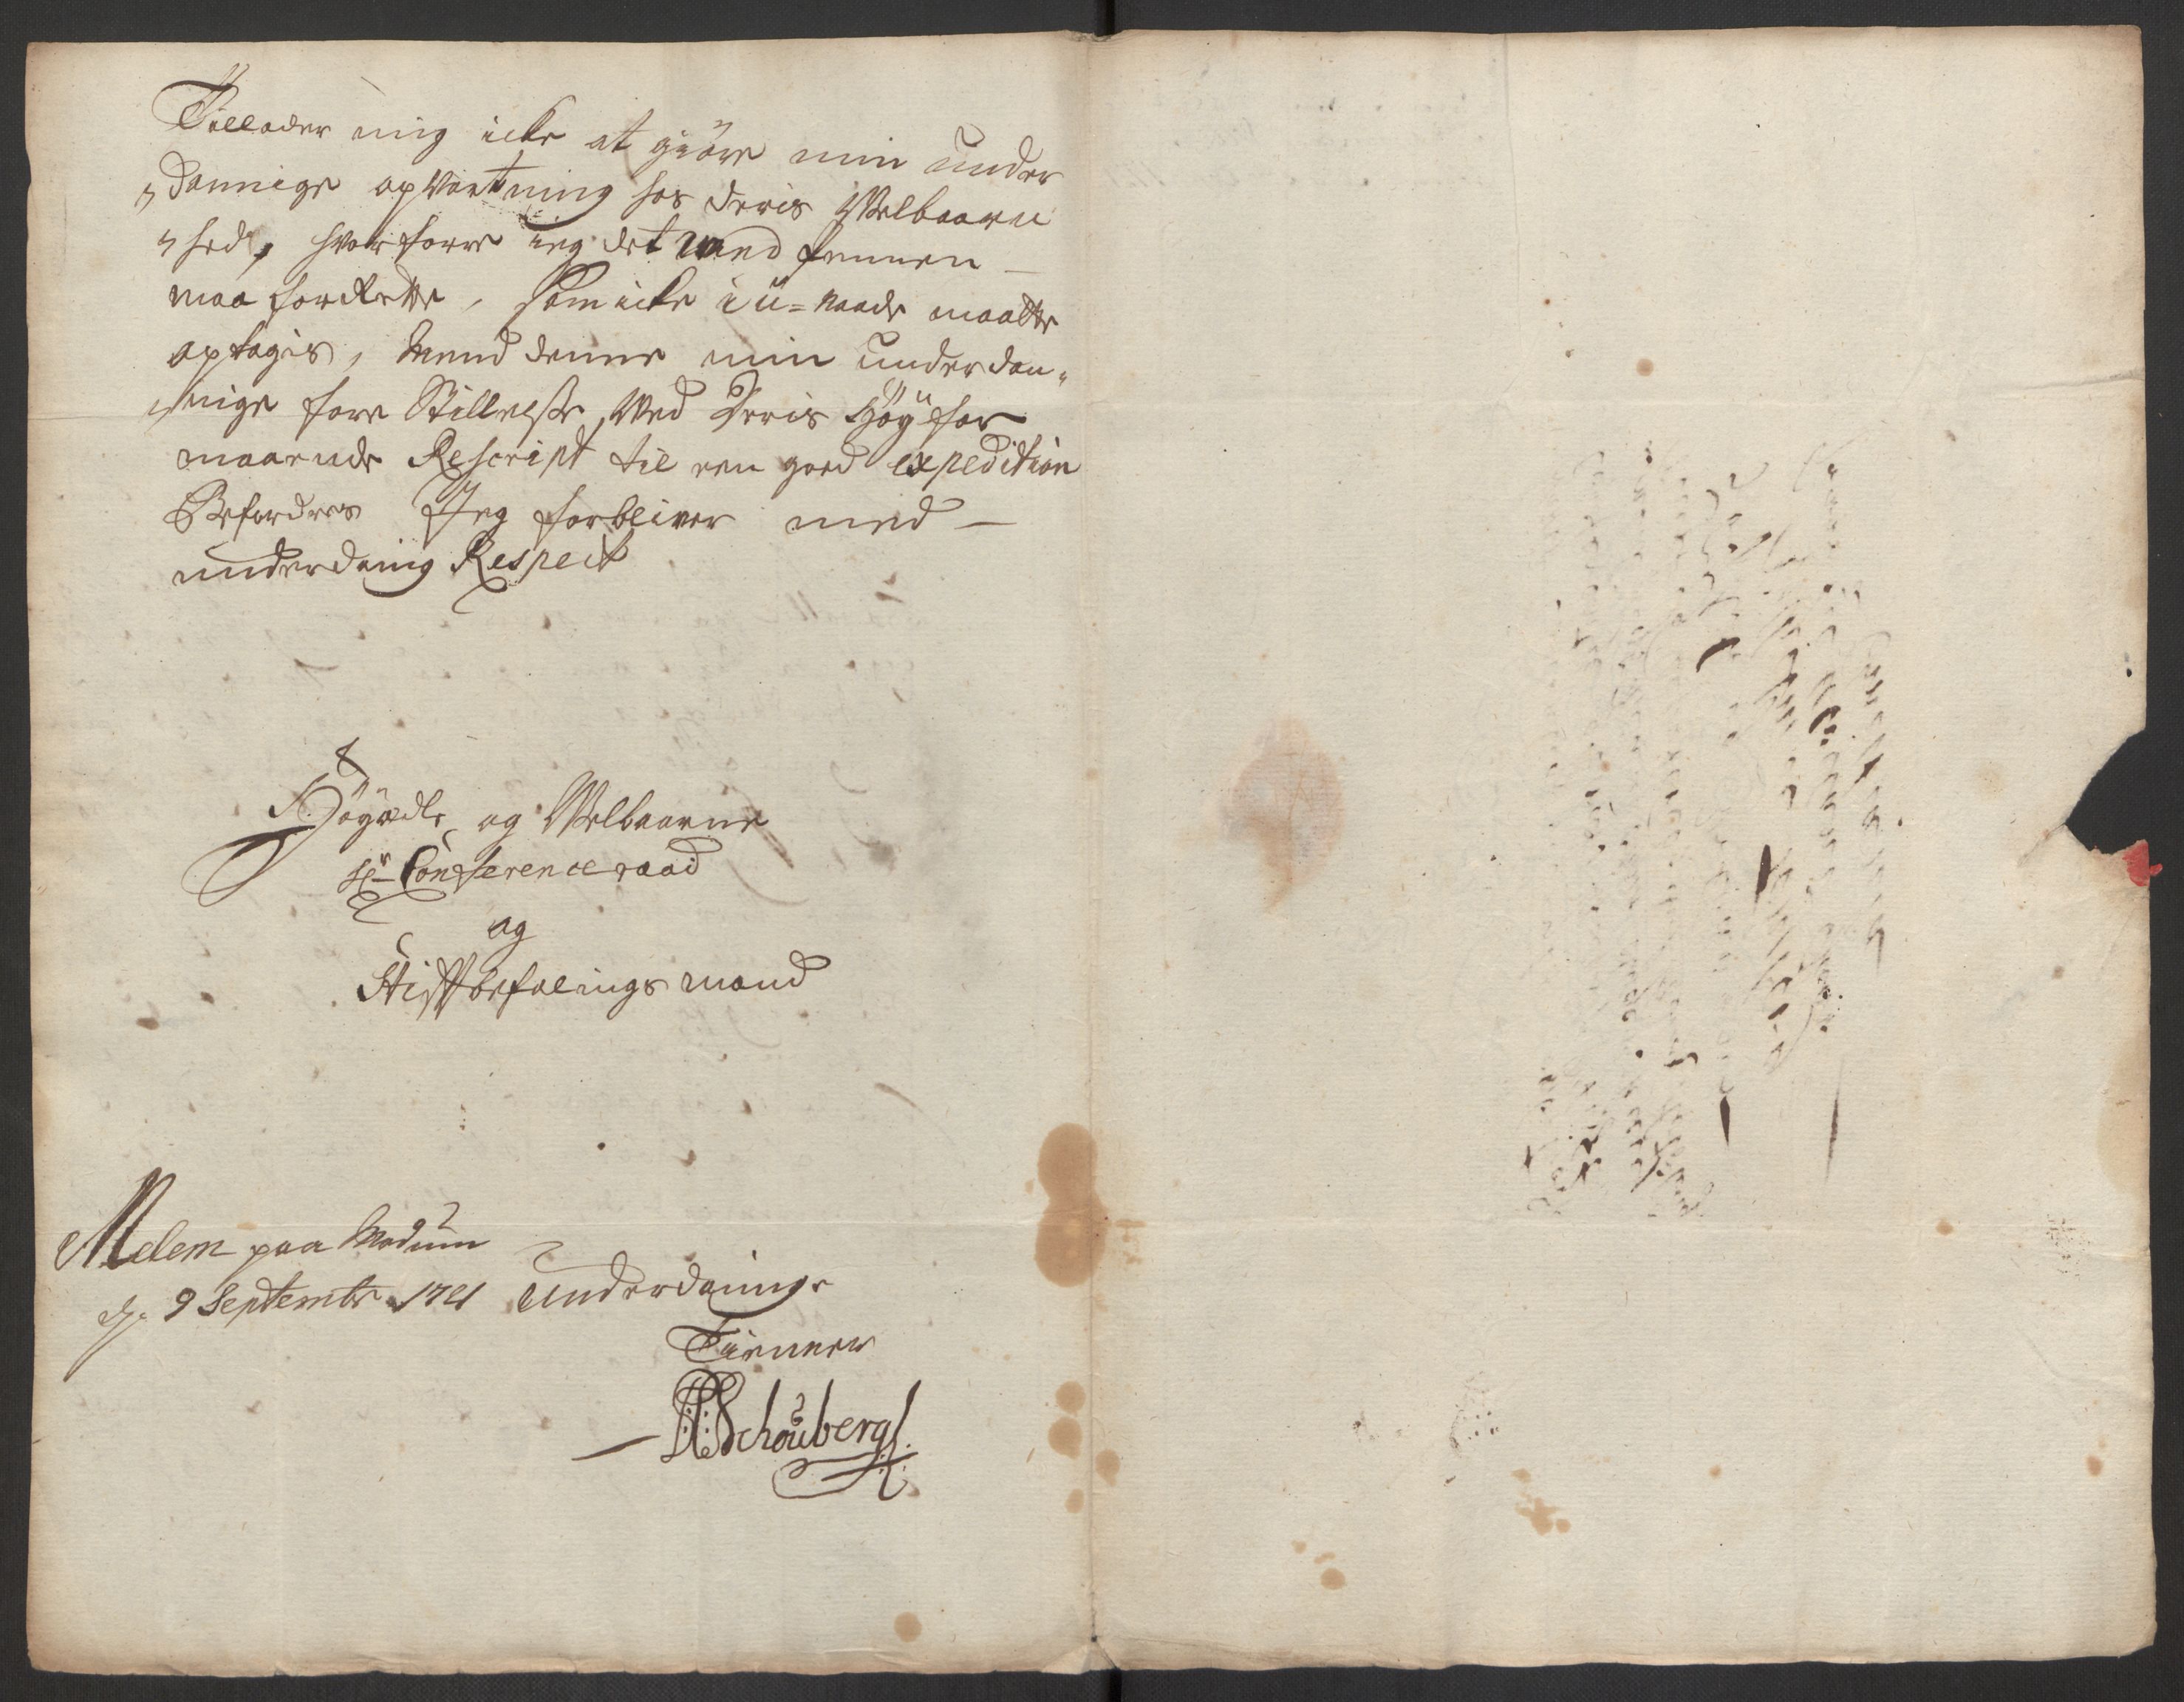 Tillader mig icke at giöre min under
„dannige opVartning hos deris Welbaarn
„hed, hvorforre ieg det med pennen
maa forrette, som icke i u=naade maatte
optagis, Mend denne min underdan„
„nige fore Stillelse, Ved Deris Höy for
maaende Rescript til een goed expedition
Befordres Jeg forbliver med
underdanig Respect
Höyædle og Welbaarne
Hr Conferenceraad
og
Stiftbefalings mand
Melem paa Modum
d. 9 Septembr 1721 Underdanigs
Tienner
Schouberg